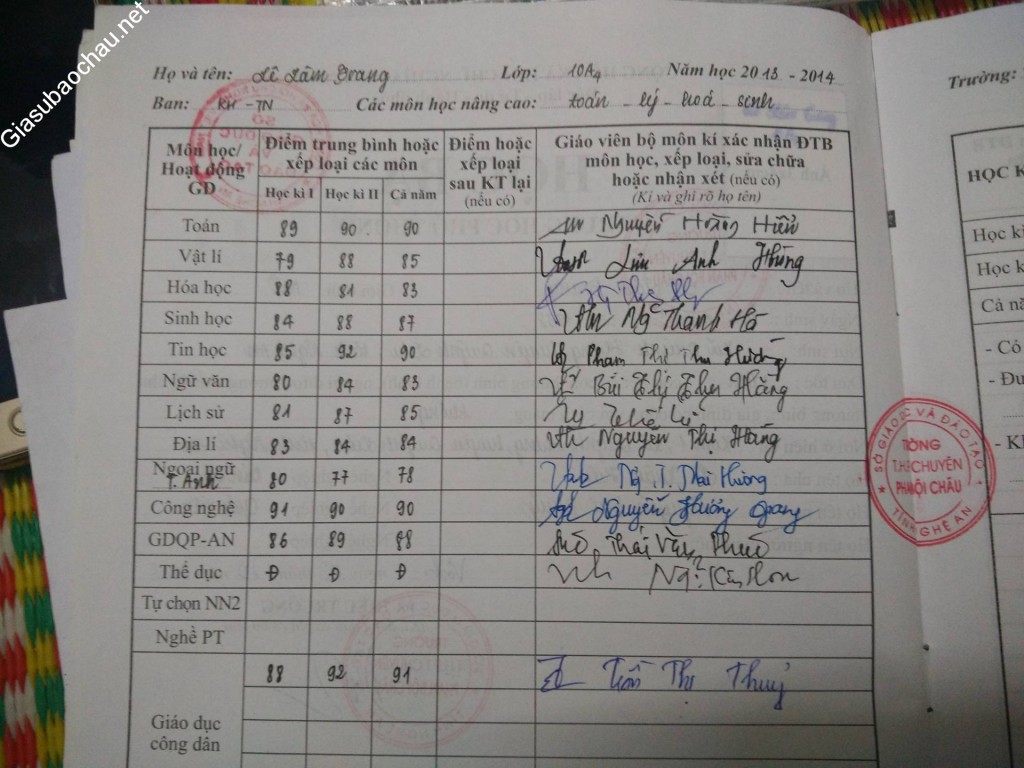 Giasubaochau.net
Họ và tên: Lê Lâm Trang Lớp: 10A4 Năm học 2013 - 2014
Trường:
Ban: KH - TN Các môn học nâng cao: toán - lý - hoá - sinh
Môn học/ Hoạt động GD
Điểm trung bình hoặc xếp loại các môn
Học kì I Học kì II Cả năm
Điểm hoặc xếp loại sau KT lại (nếu có)
Giáo viên bộ môn kí xác nhận ĐTB môn học, xếp loại, sửa chữa hoặc nhận xét (nếu có)
(Kí và ghi rõ họ tên)
Toán 89 90 90 Nguyễn Hoàng Hiển
Vật lí 79 88 85 Lưu Anh Hùng
Hóa học 88 81 83
Sinh học 84 88 87 Ng Thanh Hà
Tin học 85 92 90 Phạm Thị Thu Hường
Ngữ văn 80 84 83 Bùi Thuý Hằng
Lịch sử 81 87 85
Địa lí 83 84 84 Nguyễn Thị Hồng
Ngoại ngữ T. Anh 80 77 78 Ng T. Mai Hương
Công nghệ 91 90 90 Nguyễn Hương Giang
GDQP-AN 86 89 88 Thái Văn
Thể dục Đ Đ Đ
Tự chọn NN2
Nghề PT
Giáo dục công dân 88 92 91 Trần Thị Thuỷ
HỌC K
Học kì
Học k
Cả nă
- Có
- Đu
- Kh
SỞ GIÁO DỤC VÀ ĐÀO TẠO
TRƯỜNG
T.H.P.T CHUYÊN
PHAN BỘI CHÂU
TỈNH NGHỆ AN